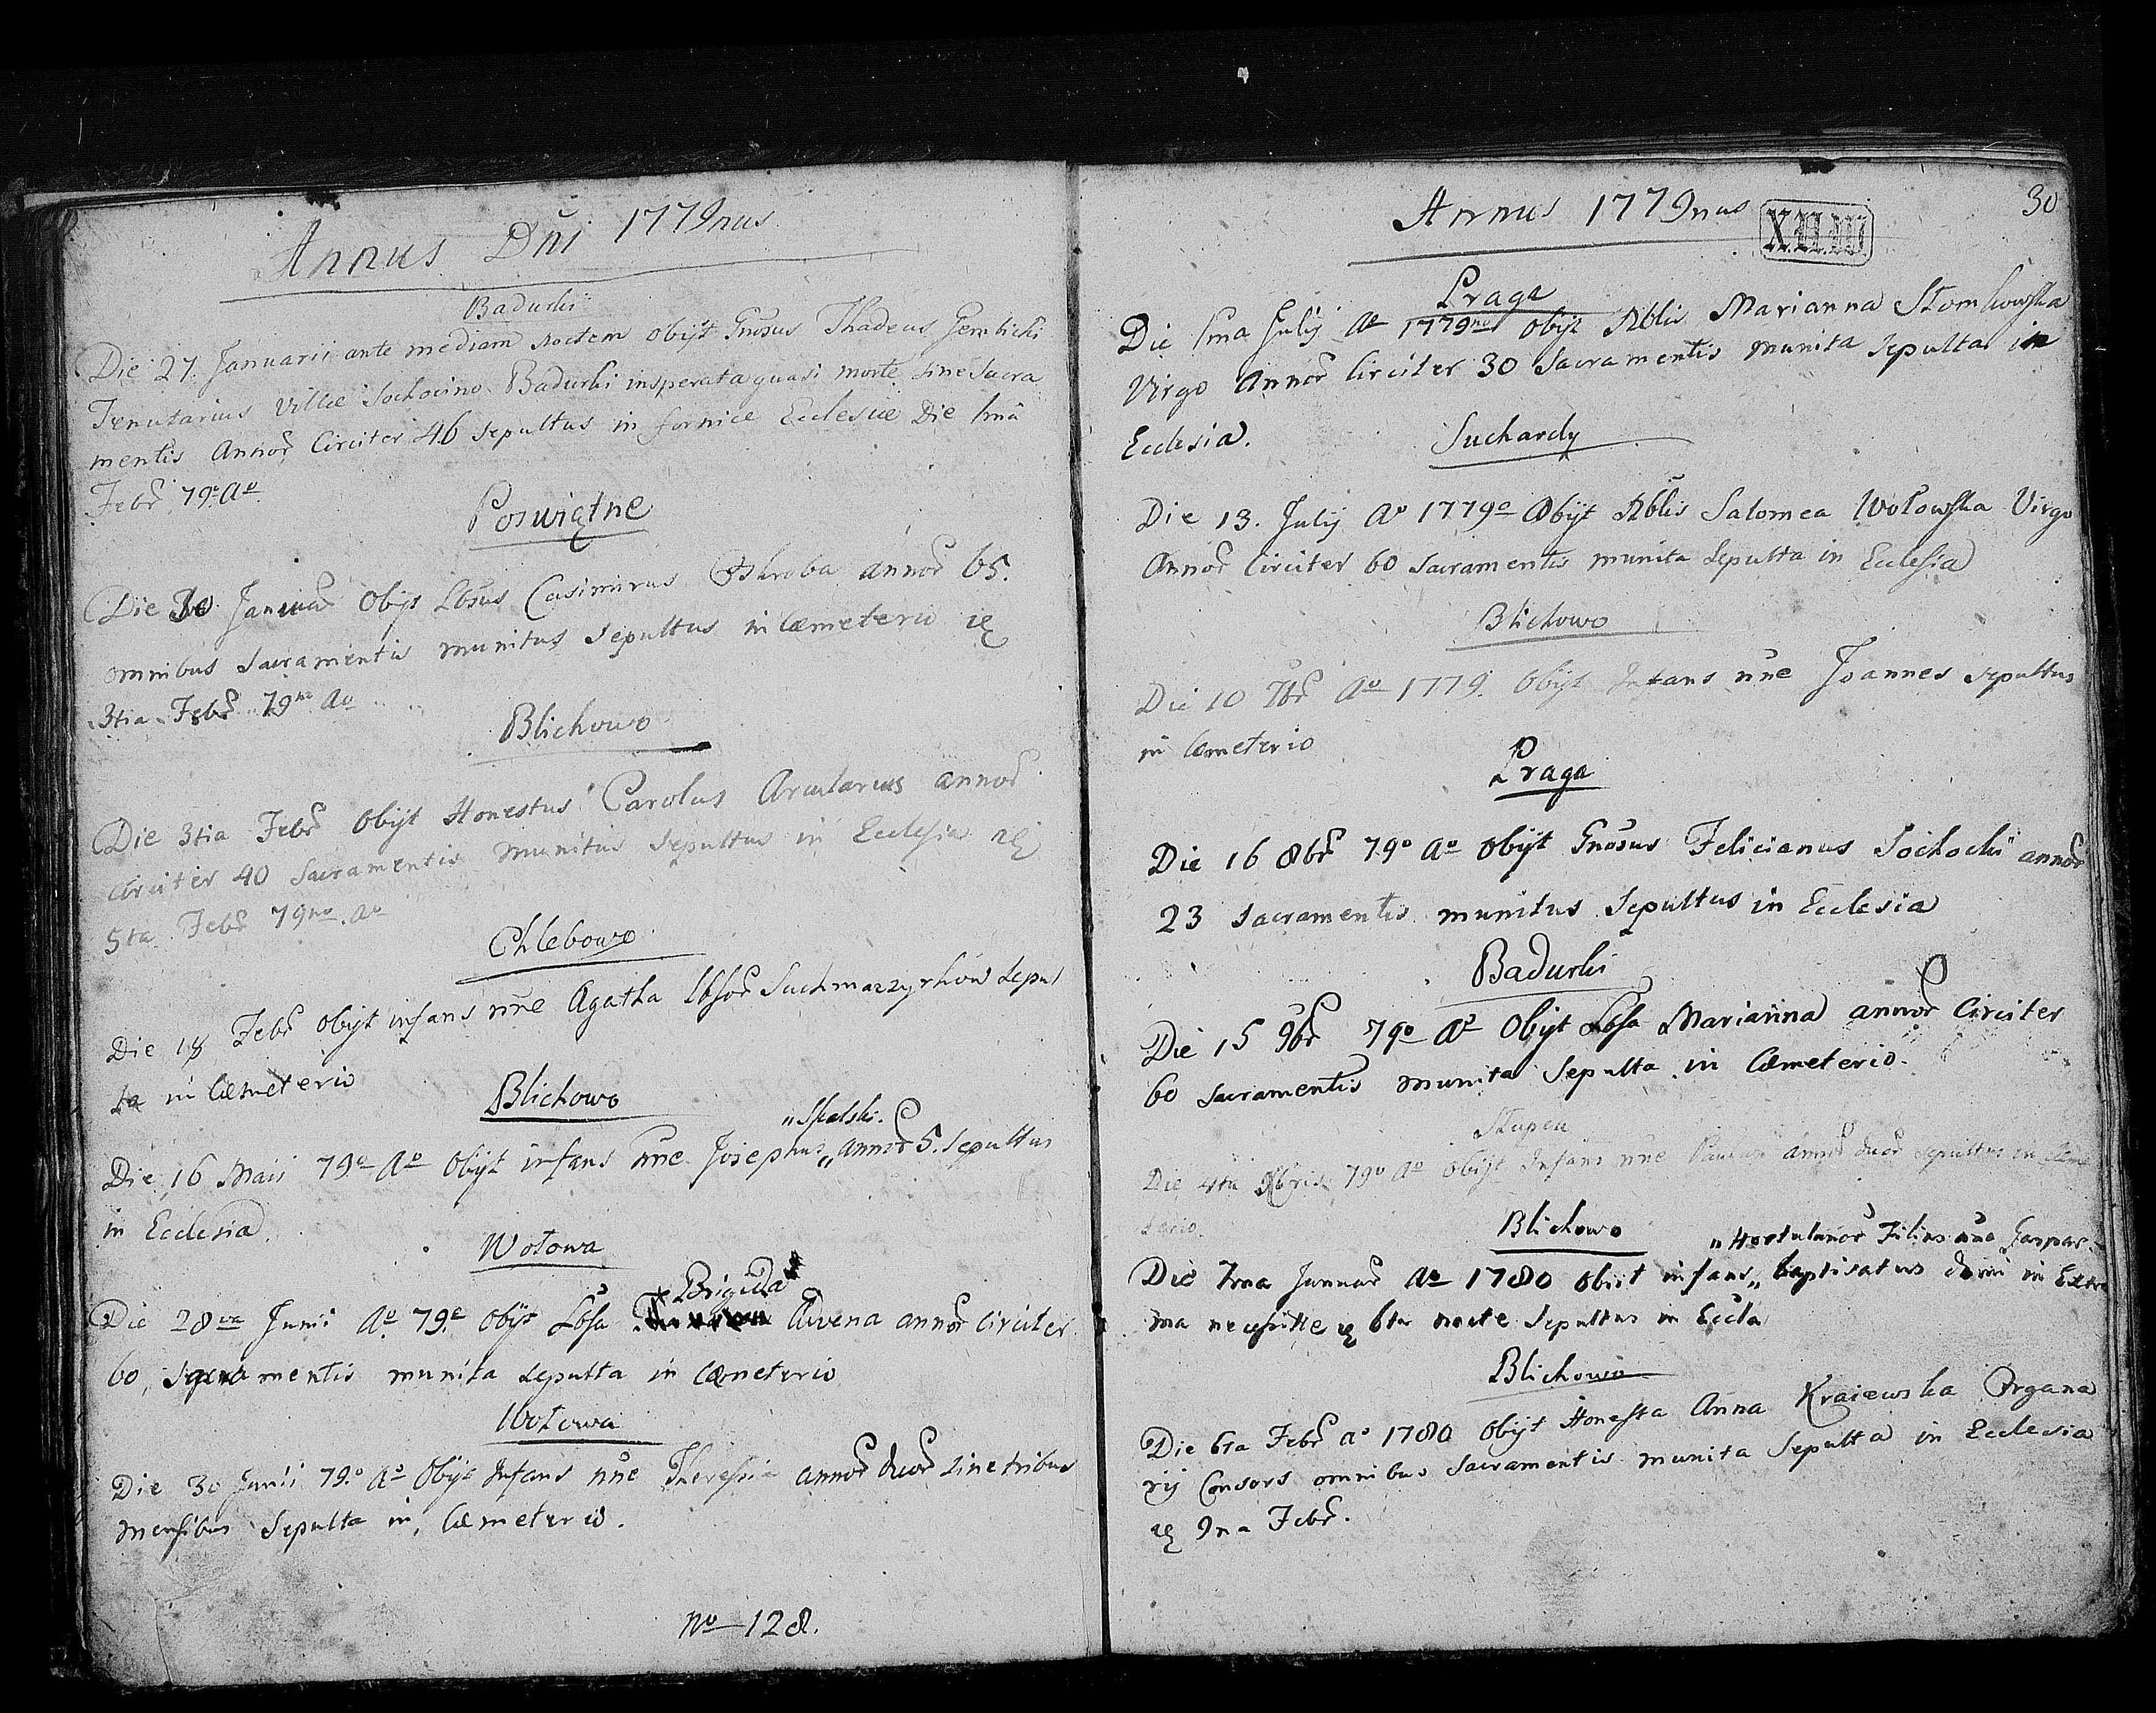 Annus Dni 1779nus
Badurki
Die 27. Januarii ante mediam noctem obijt Gnosus Thadeus Gembicki
Tenutarius Villæ Sochocino Badurki insperata quasi morte sine Sacra
mentis Annor Circiter 46 sepultus in fornice Ecclesiæ Die 1mâ
Febr 79º Aº
Poswiętne
Die 30 Januar Obijt Lbsus Casimirus Oskroba annor 65.
omnibus Sacramentis munitus Sepultus in Cæmeterio
3tia Febr 79no Ao
Blichowo
Die 3tia Febr Obijt Honestus Carolus Arcularius annor
circiter 40 Sacramentis munitus Sepultus in Ecclesia
5ta Febr 79no Ao
Chlebowo
Die 18 Febr obijt infans nne Agatha Lbsor Suchmarzyrkow Sepul
ta in Cæmeterio
Blichowo
„Skalski.
Die 16 Maii 79o Ao Obijt infans nne Josephus„ annor 5. Sepultus
in Ecclesia
Wołowa
Brigida
Die 28va Junii Ao 79o Obijt Lbsa Advena annor circiter
60, Sacramentis munita Sepulta in Cæmeterio
Wołowa
Die 30 Junii 79o Ao Obijt Infans nne Theressia annor duor sine tribus
mensibus Sepulta in Cæmeterio.
No 128.
Annus 1779nus
30
Praga
Die 1ma Julij Ao 1779no Obijt Nblis Marianna Słomkowska
Virgo Annor Circiter 30 Sacramentis munita Sepulta in
Ecclesia.
Suchardy
Die 13. Julij Ao 1779o Obijt Nblis Salomea Wołowska Virgo
Annor Circiter 60 Sacramentis munita Sepulta in Ecclesia
Blichowo
Die 10 7br Ao 1779. Obijt Infans nne Joannes Sepultus
in Cæmeterio
Praga
Die 16 8br 79o Ao Obijt Gnosus Felicianus Sochocki annor
23 Sacramentis munitus Sepultus in Ecclesia
Badurki
Die 15 9br 79o Ao Obijt Lbsa Marianna annor Circiter
60 Sacramentis munita Sepulta in Cæmeterio.
Słupca
Die 4ta Xbris 79o Ao Obijt Infans nne annor duor Sepultus in Cæme
terio.
Blichowo
„Hortulanor Filius nne Gaspar
Die 7ma Januar Ao 1780 Obiit infans„ baptisatus domi in Extre
ma necessitte 6ta nocte Sepultus in Eccla
Blichowo
Die 6ta Febr ao 1780 Obijt Honesta Anna Kraiewska Organa
rij Consors omnibus Sacramentis munita Sepulta in Ecclesia
9na Febr.